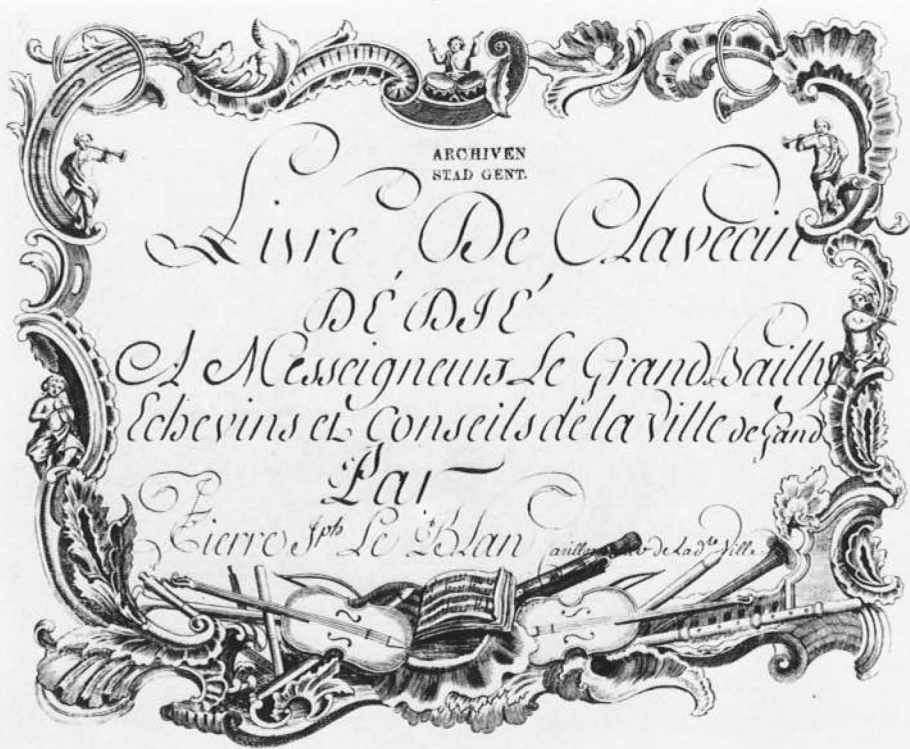 ARCHIVEN
STAD GENT.
Livre De Clavecin
DÉDIÉ
A Messeigneurs Le Grand Bailly
Echevins et Conseils de la Ville de Gand
Par
Pierre Jph Le Blan de la dte Ville